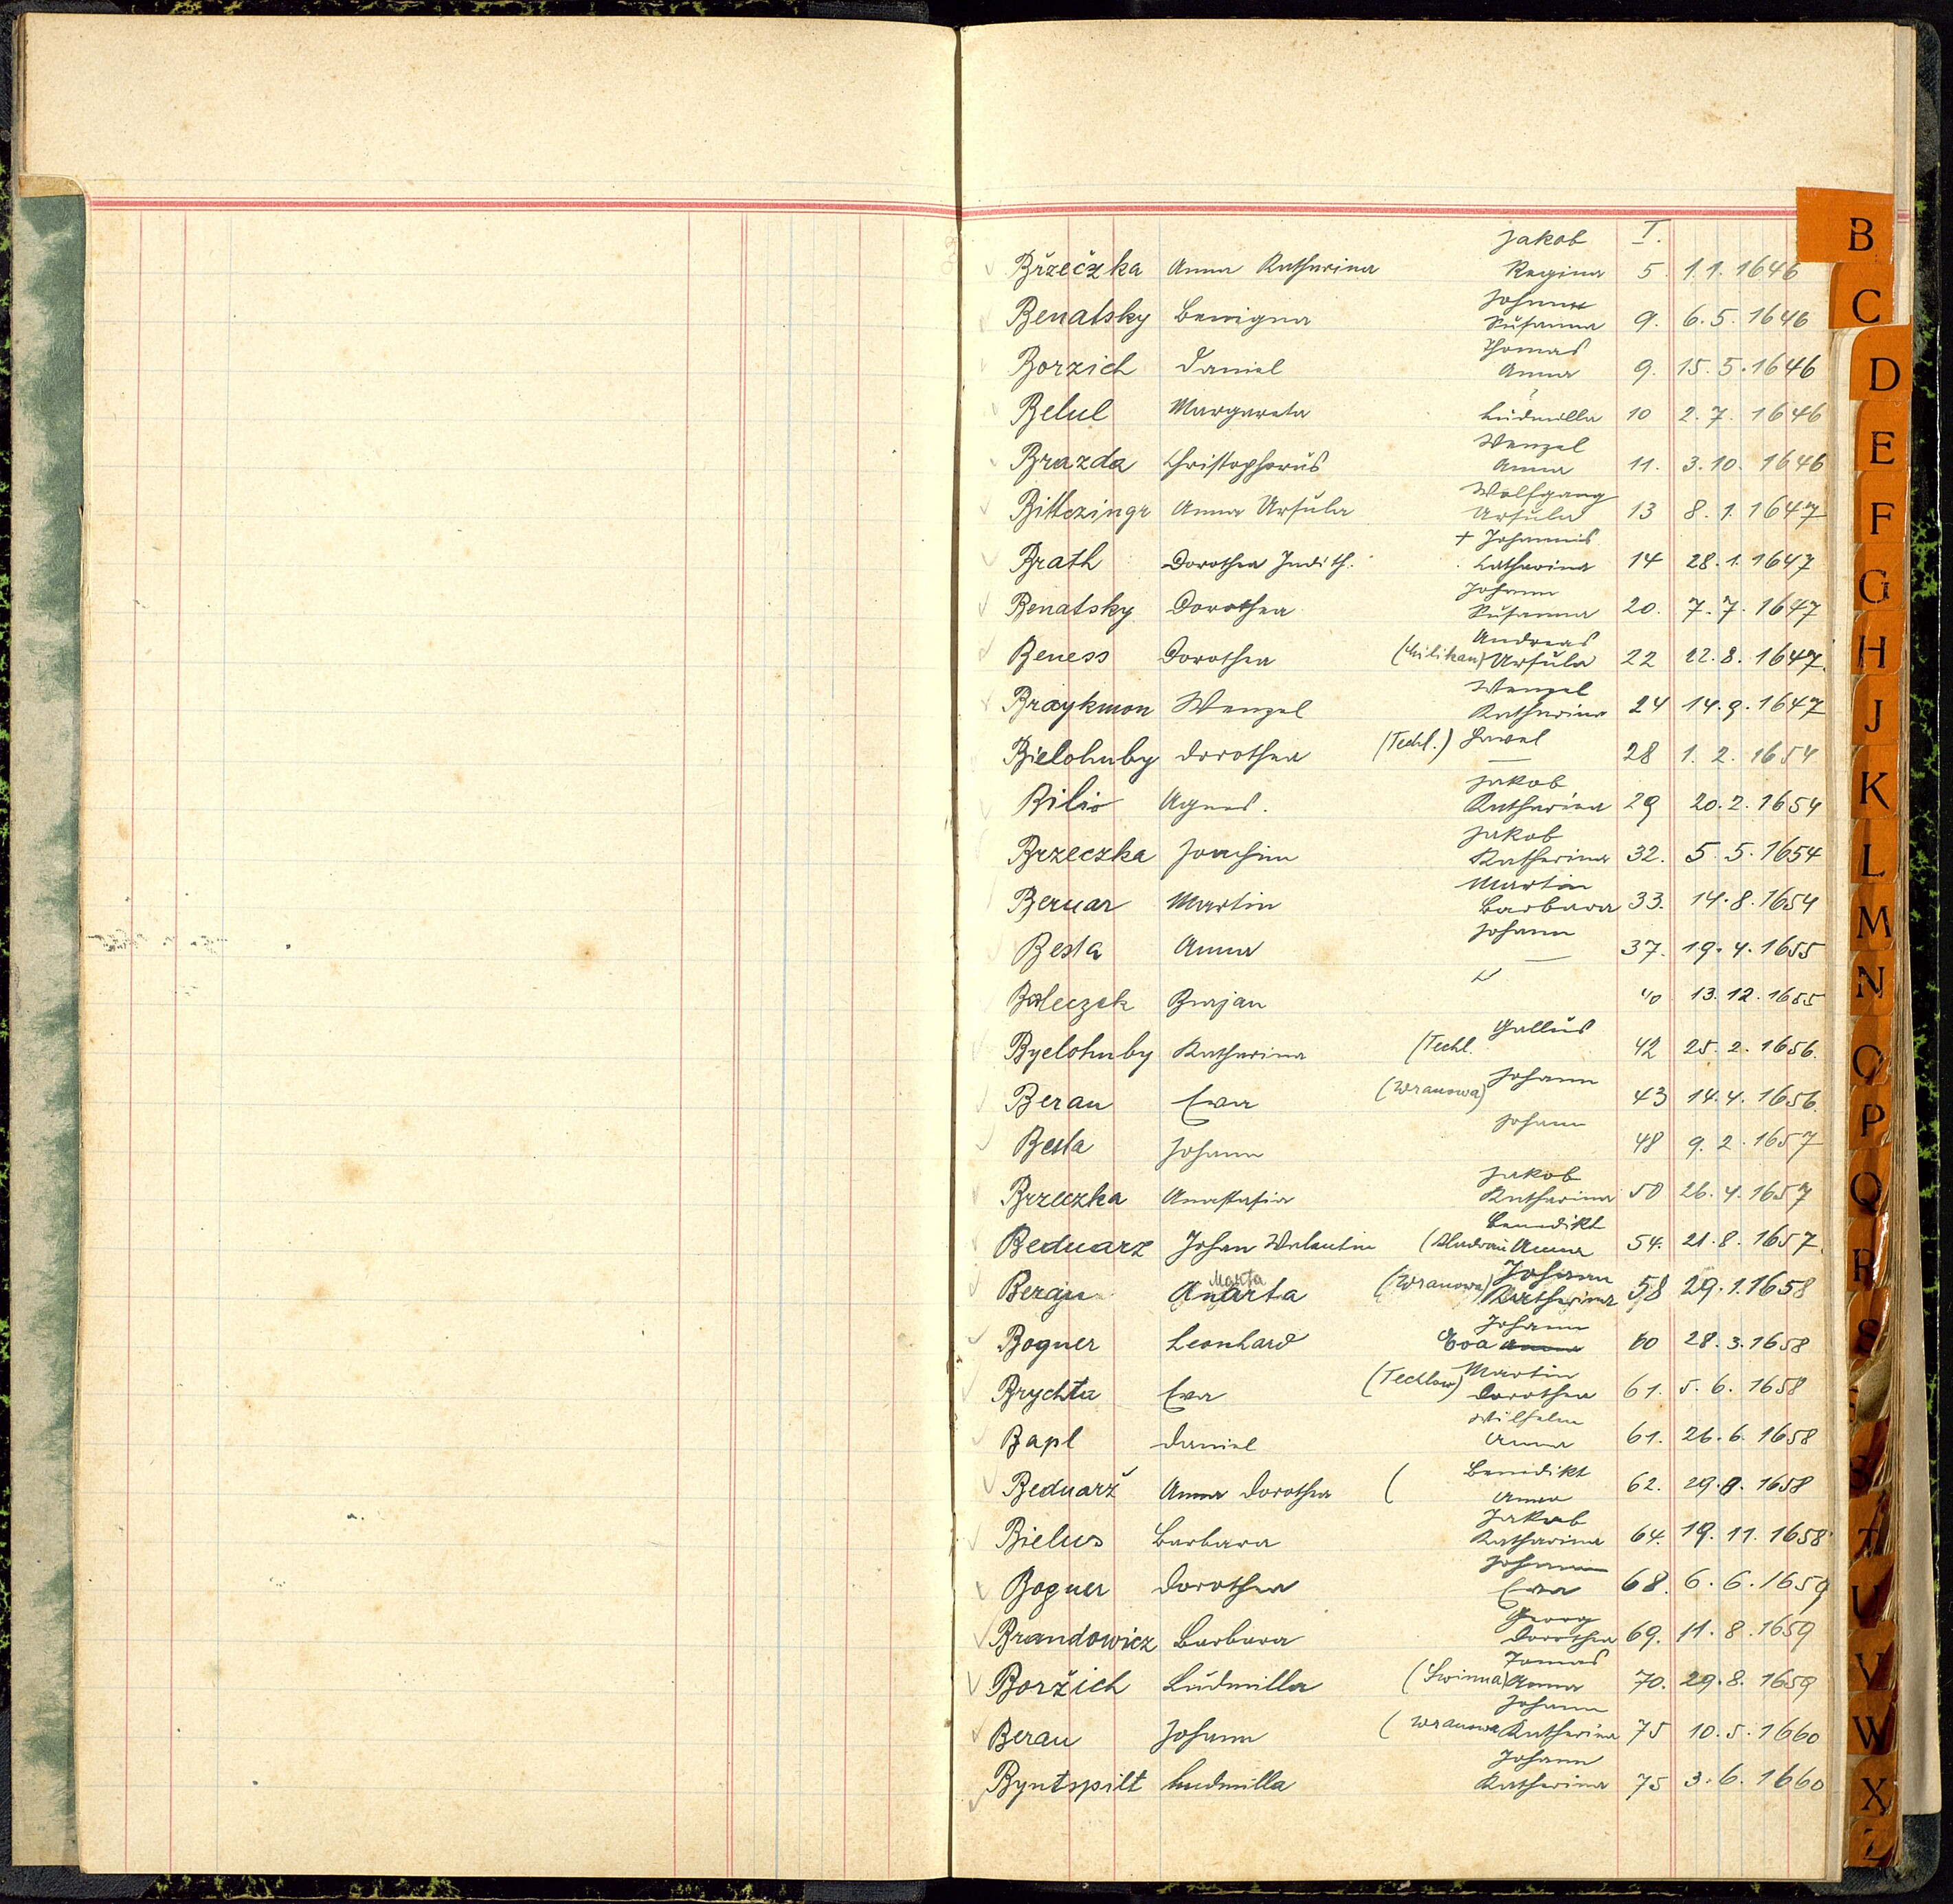 Jakob I.
Bržečzka Anna Katharina Regina 5. 1.1.1646
Johann
Benatsky Benigna Susanna 9. 6.5.1646
Thomas
Borzich Daniel Anna 9. 15.5.1646
?
Belul Margareta Ludmilla 10 2.7.1646
Wenzel
Brazda Christophorus Anna 11. 3.10.1646
Wolfgang
Bittczingr Anna Ursula Ursula 13 8.1.1647
+ Johannis
Brath Dorothea Judith. Katharina 14 28.1.1647
Johann
Benatsky Dorothea Susanna 20. 7.7.1647
Andreas
Beness Dorothea Ursula 22 22.8.1647.
Wenzel
Braykmon Wenzel Katharina 24 14.9.1647
Bielohuby Dorothea (Techl.) Hawel — 28 1.2.1654
Jakob
Bilio Agnes. Katharina 29 20.2.1654
Jakob
Brzeczka Joachim Katharina 32. 5.5.1654
Martin
Beruar Martin Barbara 33. 14.8.1654
Johann
Besta Anna — 37. 19.4.1655
Burjan 40 13.12.1655
Gallus
Byelohuby Katharina (Techl. 42 25.2.1656.
Johann
Beran Eva (Wranowa) 43 14.4.1656.
Johann
Besta Johann 48 9.2.1657
Jakob
Brzeczka Anastasia Katharina 50 26.4.1657
Benedikt
Beduarz Johan Valentin (Kladrau Anna 54. 21.8.1657.
Marta Johann
(Wranowa) Katharina 58 29.1.1658
Johann
Bogner Leonhard Eva Anna 60 28.3.1658
Martin
Brychta Eva (Techlow) Dorothea 61. 5.6.1658
Wilhelm
Bapl Daniel Anna 61. 26.6.1658
Benedikt
Beduarž Anna Dorothea ( Anna 62. 29.8.1658
Jakob
Bielus Barbara Katharina 64. 19.11.1658
Johann
Bogner Dorothea Eva 68. 6.6.1659
Georg
Brandowicz Barbara Dorothea 69. 11.8.1659
Tomas
Boržich Ludmilla (Swinna) Anna 70. 29.8.1659
Johann
Beran Johann (Wranowa Katharina 75 10.5.1660
Johann
Byntspilt Ludmilla Katharina 75 3.6.1660
B
C
D
E
F
G
H
J
K
L
M
N
O
P
Q
R
S
T
U
V
W
X
Z